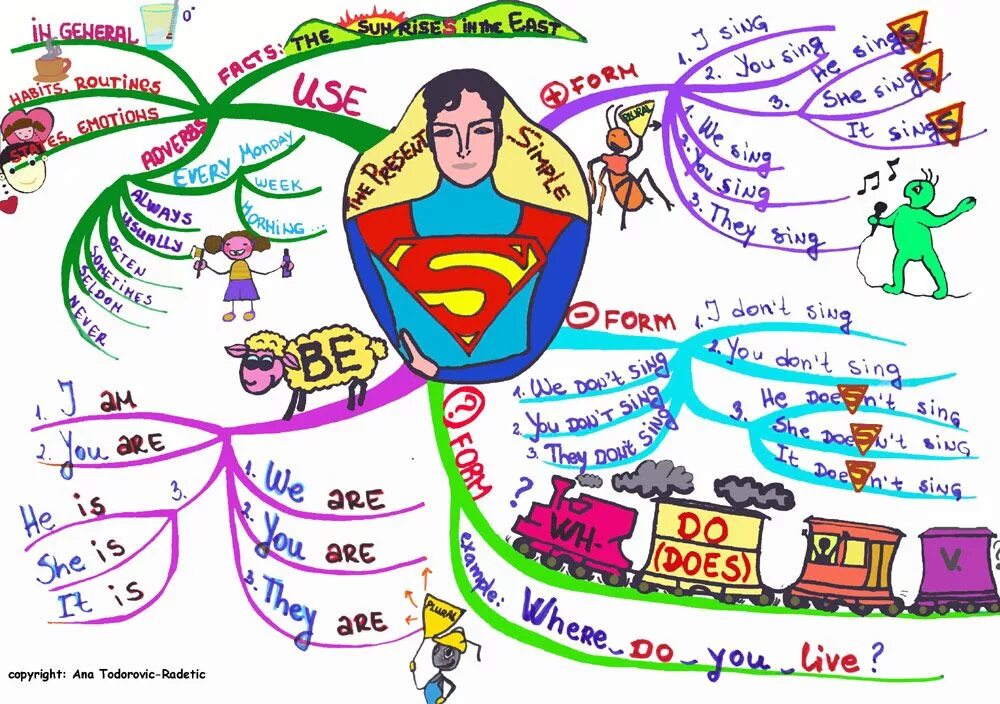 THE PRESENT SIMPLE
S
USE
FACTS: THE SUN RISES in the EAST
iN GENERAL
0°
HABITS, ROUTINES
STATES, EMOTIONS
ADVERBS
EVERY MONDAY
WEEK
MORNING...
ALWAYS
USUALLY
OFTEN
SOMETIMES
SELDOM
NEVER
+ FORM
1. I SiNG
2. You sing
3.
He singS
She singS
It singS
PLURAL
1. We sing
2. You sing
3. They sing
- FORM
1. I don't sing
2. You don't sing
3.
He DoeSn't sing
She DoeSn't sing
It DoeSn't sing
1. We DON'T SiNG
2. You DON'T SiNG
3. They DON'T SiNG
BE
1. I AM
2. You ARE
3.
He is
She is
It is
1. We ARE
2. You ARE
3. They ARE
PLURAL
? FORM
?
TO
WH-
DO
(DOES)
V.
example:
Where DO you live?
copyright: Ana Todorovic-Radetic